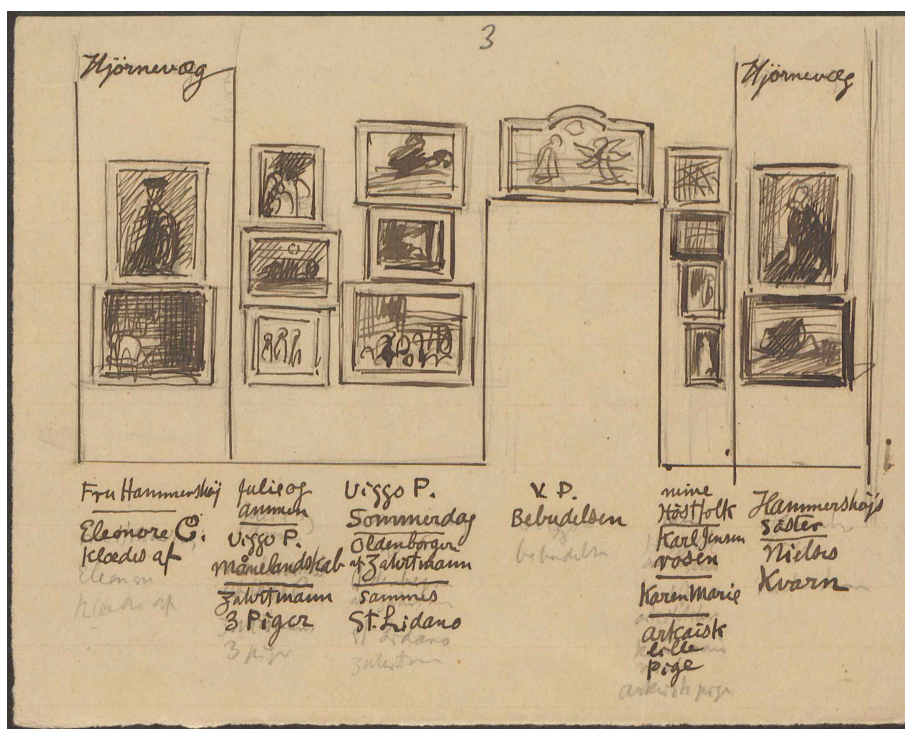 3
Hjørnevæg
Hjørnevæg
Fru Hammershøj
Eleonore C.
klædes af
Julie og
ammen
Viggo P.
Månelandskab
Zahrtmann
3 Piger
Viggo P.
Sommerdag
Oldenborger
af Zahrtmann
sammes
St. Lidano
V. P.
Bebudelsen
mine
Høstfolk
Karl Jensen
rosen
Karen Marie
arkaisk
lille
pige
Hammershøjs
Søster
Nielses
Kvarn
eleonore
klædes af
3 piger
St Lidano
bebudelse
arkaisk pige